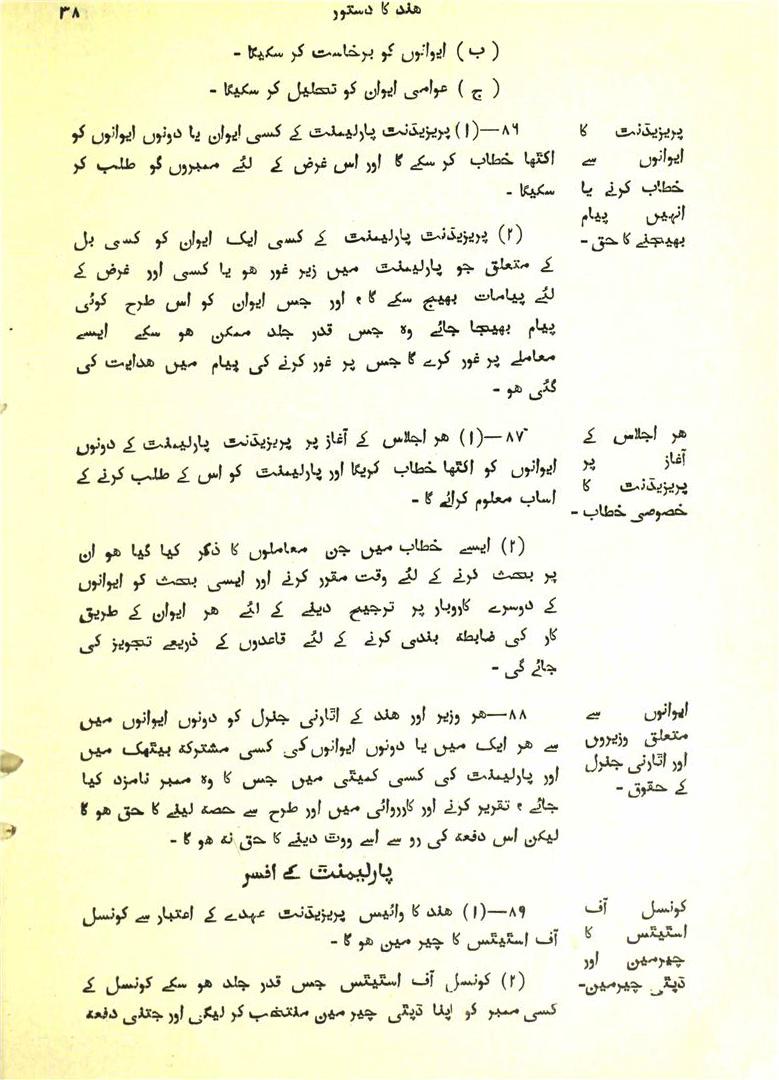 ھند کا دستور
۳۸
( ب ) ایوانوں کو برخاست کر سکیگا -
( ج ) عوامی ایوان کو تحلیل کر سکیگا -
پریزیڈنٹ کا
ایوانوں سے
خطاب کرنے یا
انہیں پیام
بھیجنے کا حق -
۸۶—(۱) پریزیڈنٹ پارلیمنٹ کے کسی ایوان یا دونوں ایوانوں کو
اکٹھا خطاب کر سکے گا اور اس غرض کے لئے ممبروں کو طلب کر
سکیگا -
(۲) پریزیڈنٹ پارلیمنٹ کے کسی ایک ایوان کو کسی بل
کے متعلق جو پارلیمنٹ میں زیر غور ھو یا کسی اور غرض کے
لئے پیامات بھیج سکے گا ، اور جس ایوان کو اس طرح کوئی
پیام بھیجا جائے وہ جس قدر جلد ممکن ھو سکے ایسے
معاملے پر غور کرے گا جس پر غور کرنے کی پیام میں ھدایت کی
گئی ھو -
ھر اجلاس کے
آغاز پر
پریزیڈنٹ کا
خصوصی خطاب -
۸۷—(۱) ھر اجلاس کے آغاز پر پریزیڈنٹ پارلیمنٹ کے دونوں
ایوانوں کو اکٹھا خطاب کریگا اور پارلیمنٹ کو اس کے طلب کرنے کے
اسباب معلوم کرائے گا -
(۲) ایسے خطاب میں جن معاملوں کا ذکر کیا گیا ھو ان
پر بحث کرنے کے لئے وقت مقرر کرنے اور ایسی بحث کو ایوانوں
کے دوسرے کاروبار پر ترجیح دینے کے لئے ھر ایوان کے طریق
کار کی ضابطہ بندی کرنے کے لئے قاعدوں کے ذریعے تجویز کی
جائے گی -
ایوانوں سے
متعلق وزیروں
اور اٹارنی جنرل
کے حقوق -
۸۸—ھر وزیر اور ھند کے اٹارنی جنرل کو دونوں ایوانوں میں
سے ھر ایک میں یا دونوں ایوانوں کی کسی مشترکہ بیٹھک میں
اور پارلیمنٹ کی کسی کمیٹی میں جس کا وہ ممبر نامزد کیا
جائے ، تقریر کرنے اور کارروائی میں اور طرح سے حصہ لینے کا حق ھو گا
لیکن اس دفعہ کی رو سے اسے ووٹ دینے کا حق نہ ھو گا -
پارلیمنٹ کے افسر
کونسل آف
اسٹیٹس کا
چیرمین اور
ڈپٹی چیرمین-
۸۹—(۱) ھند کا وائیس پریزیڈنٹ عہدے کے اعتبار سے کونسل
آف اسٹیٹس کا چیر مین ھو گا -
(۲) کونسل آف اسٹیٹس جس قدر جلد ھو سکے کونسل کے
کسی ممبر کو اپنا ڈپٹی چیر مین منتخب کر لیگی اور جتنی دفعہ